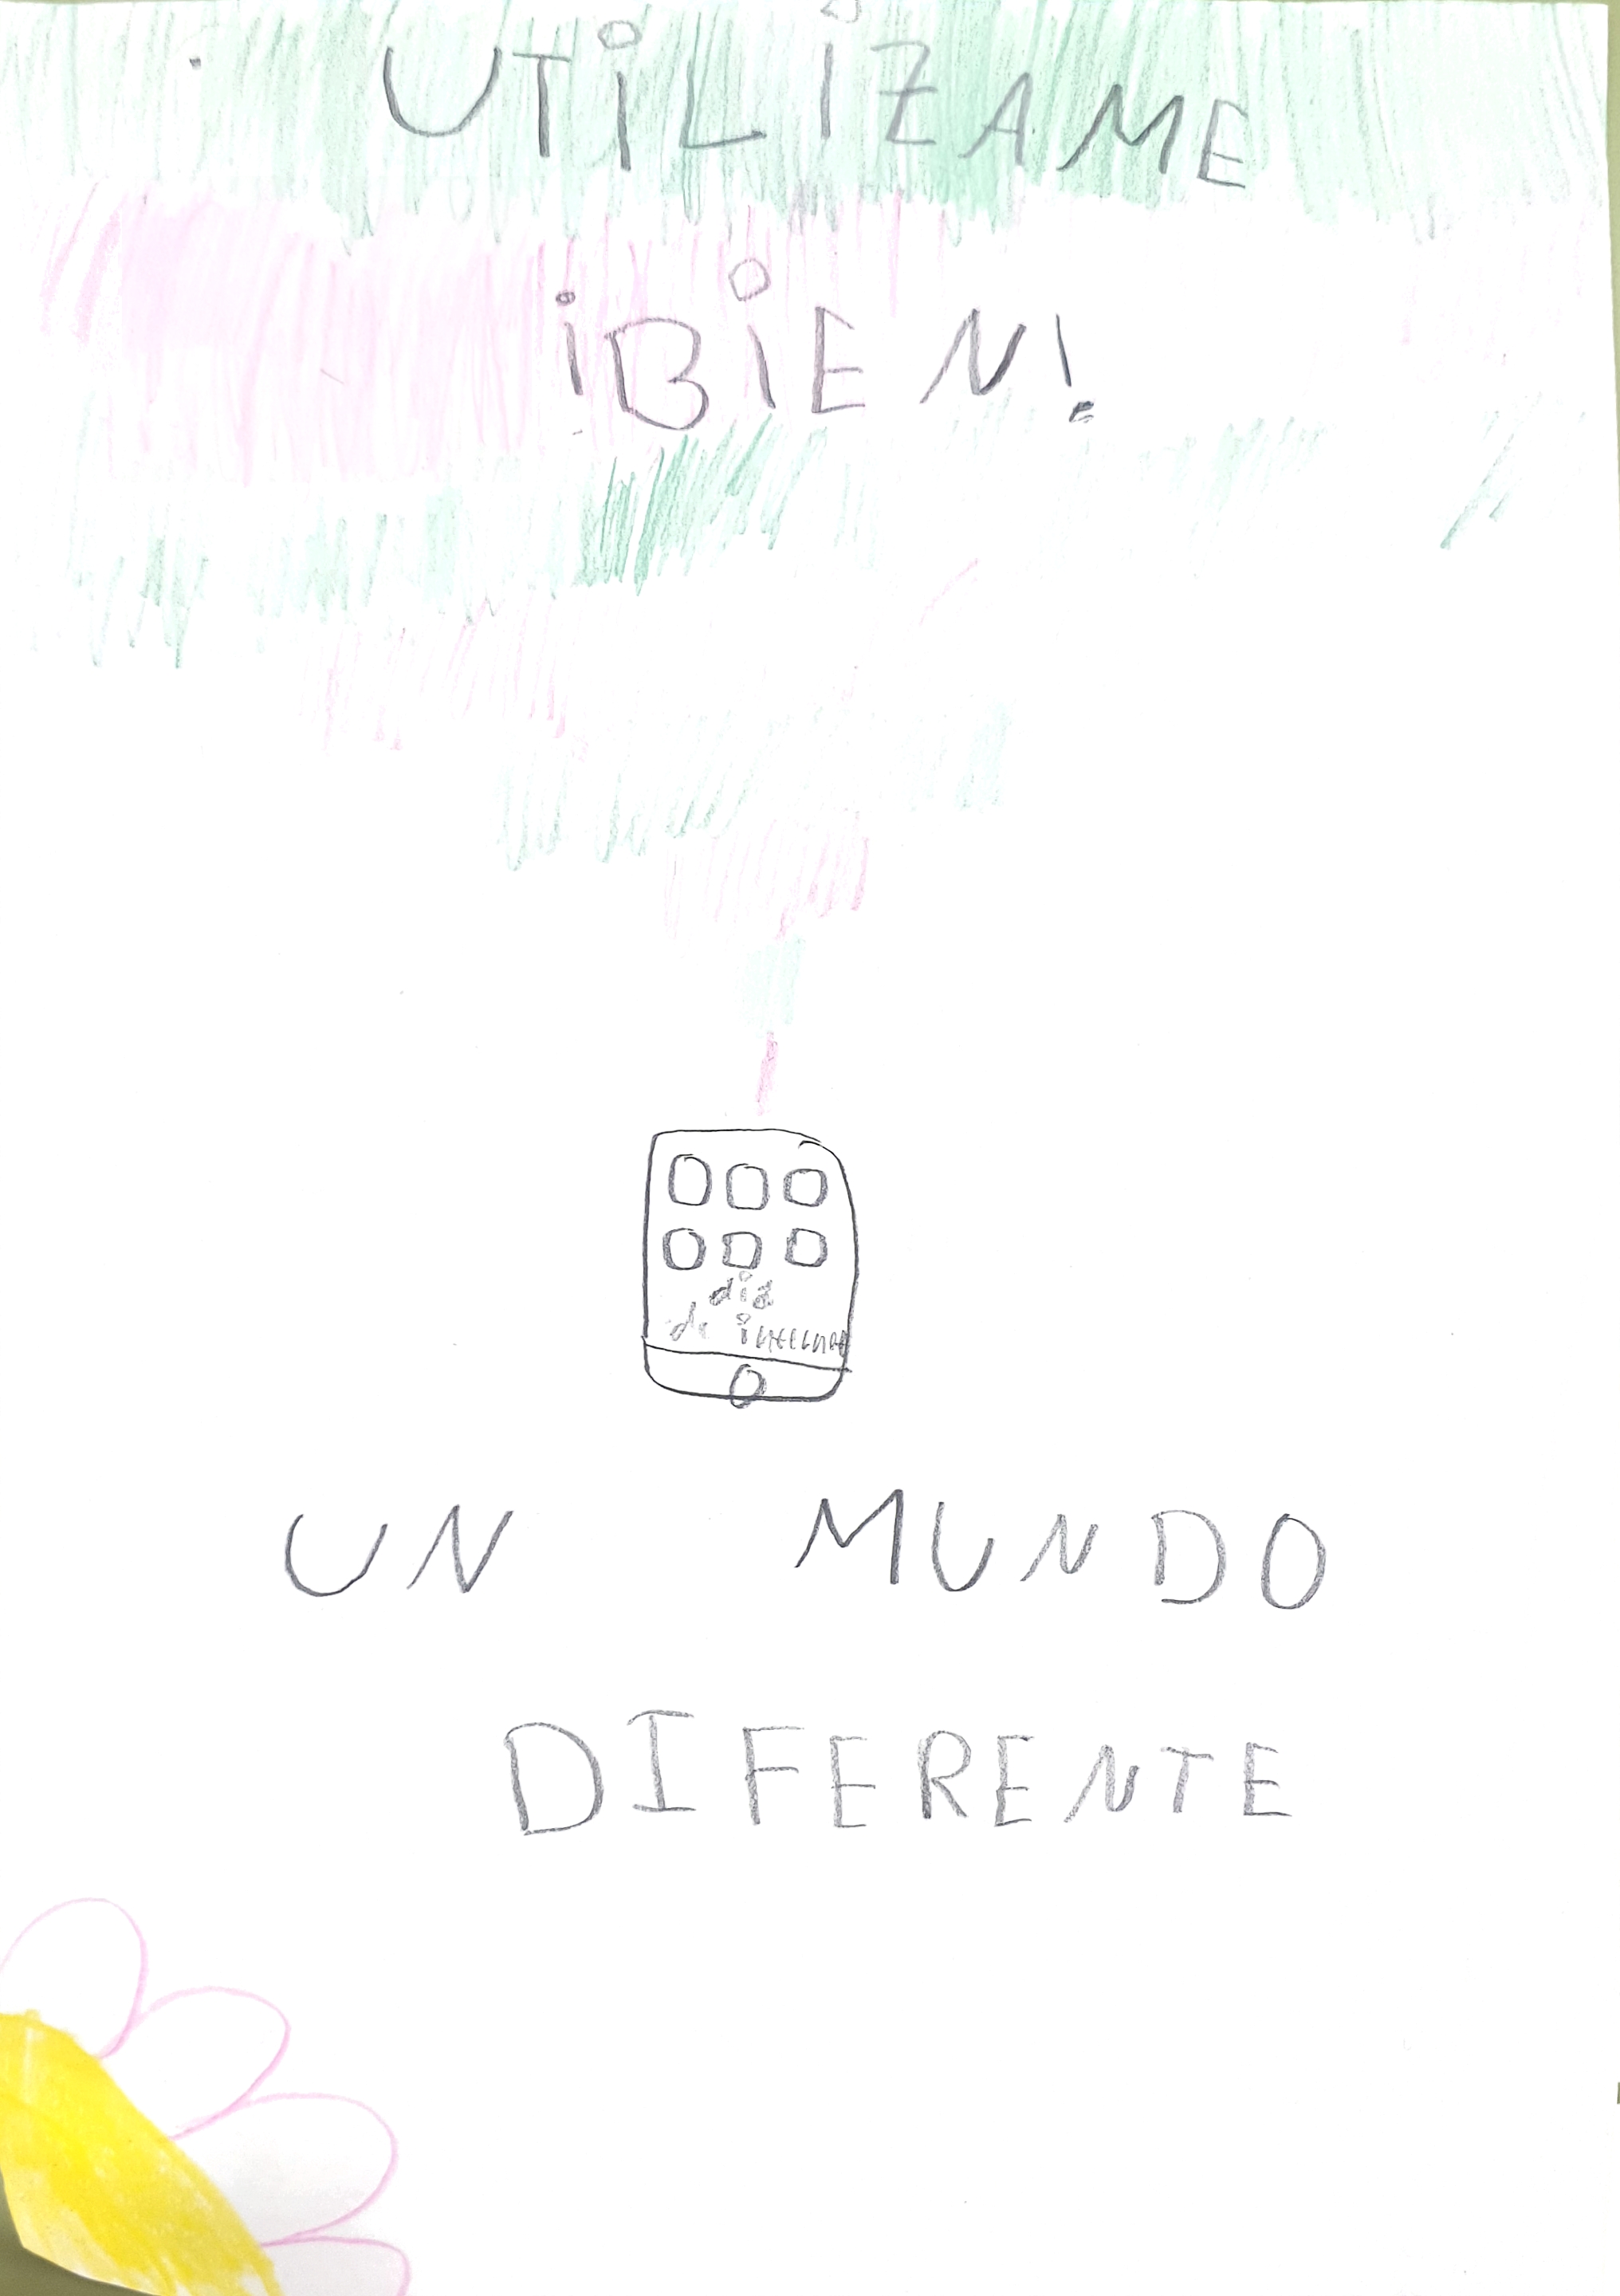 UTILIZAME
¡BIEN!
dia
de internet
UN MUNDO
DIFERENTE